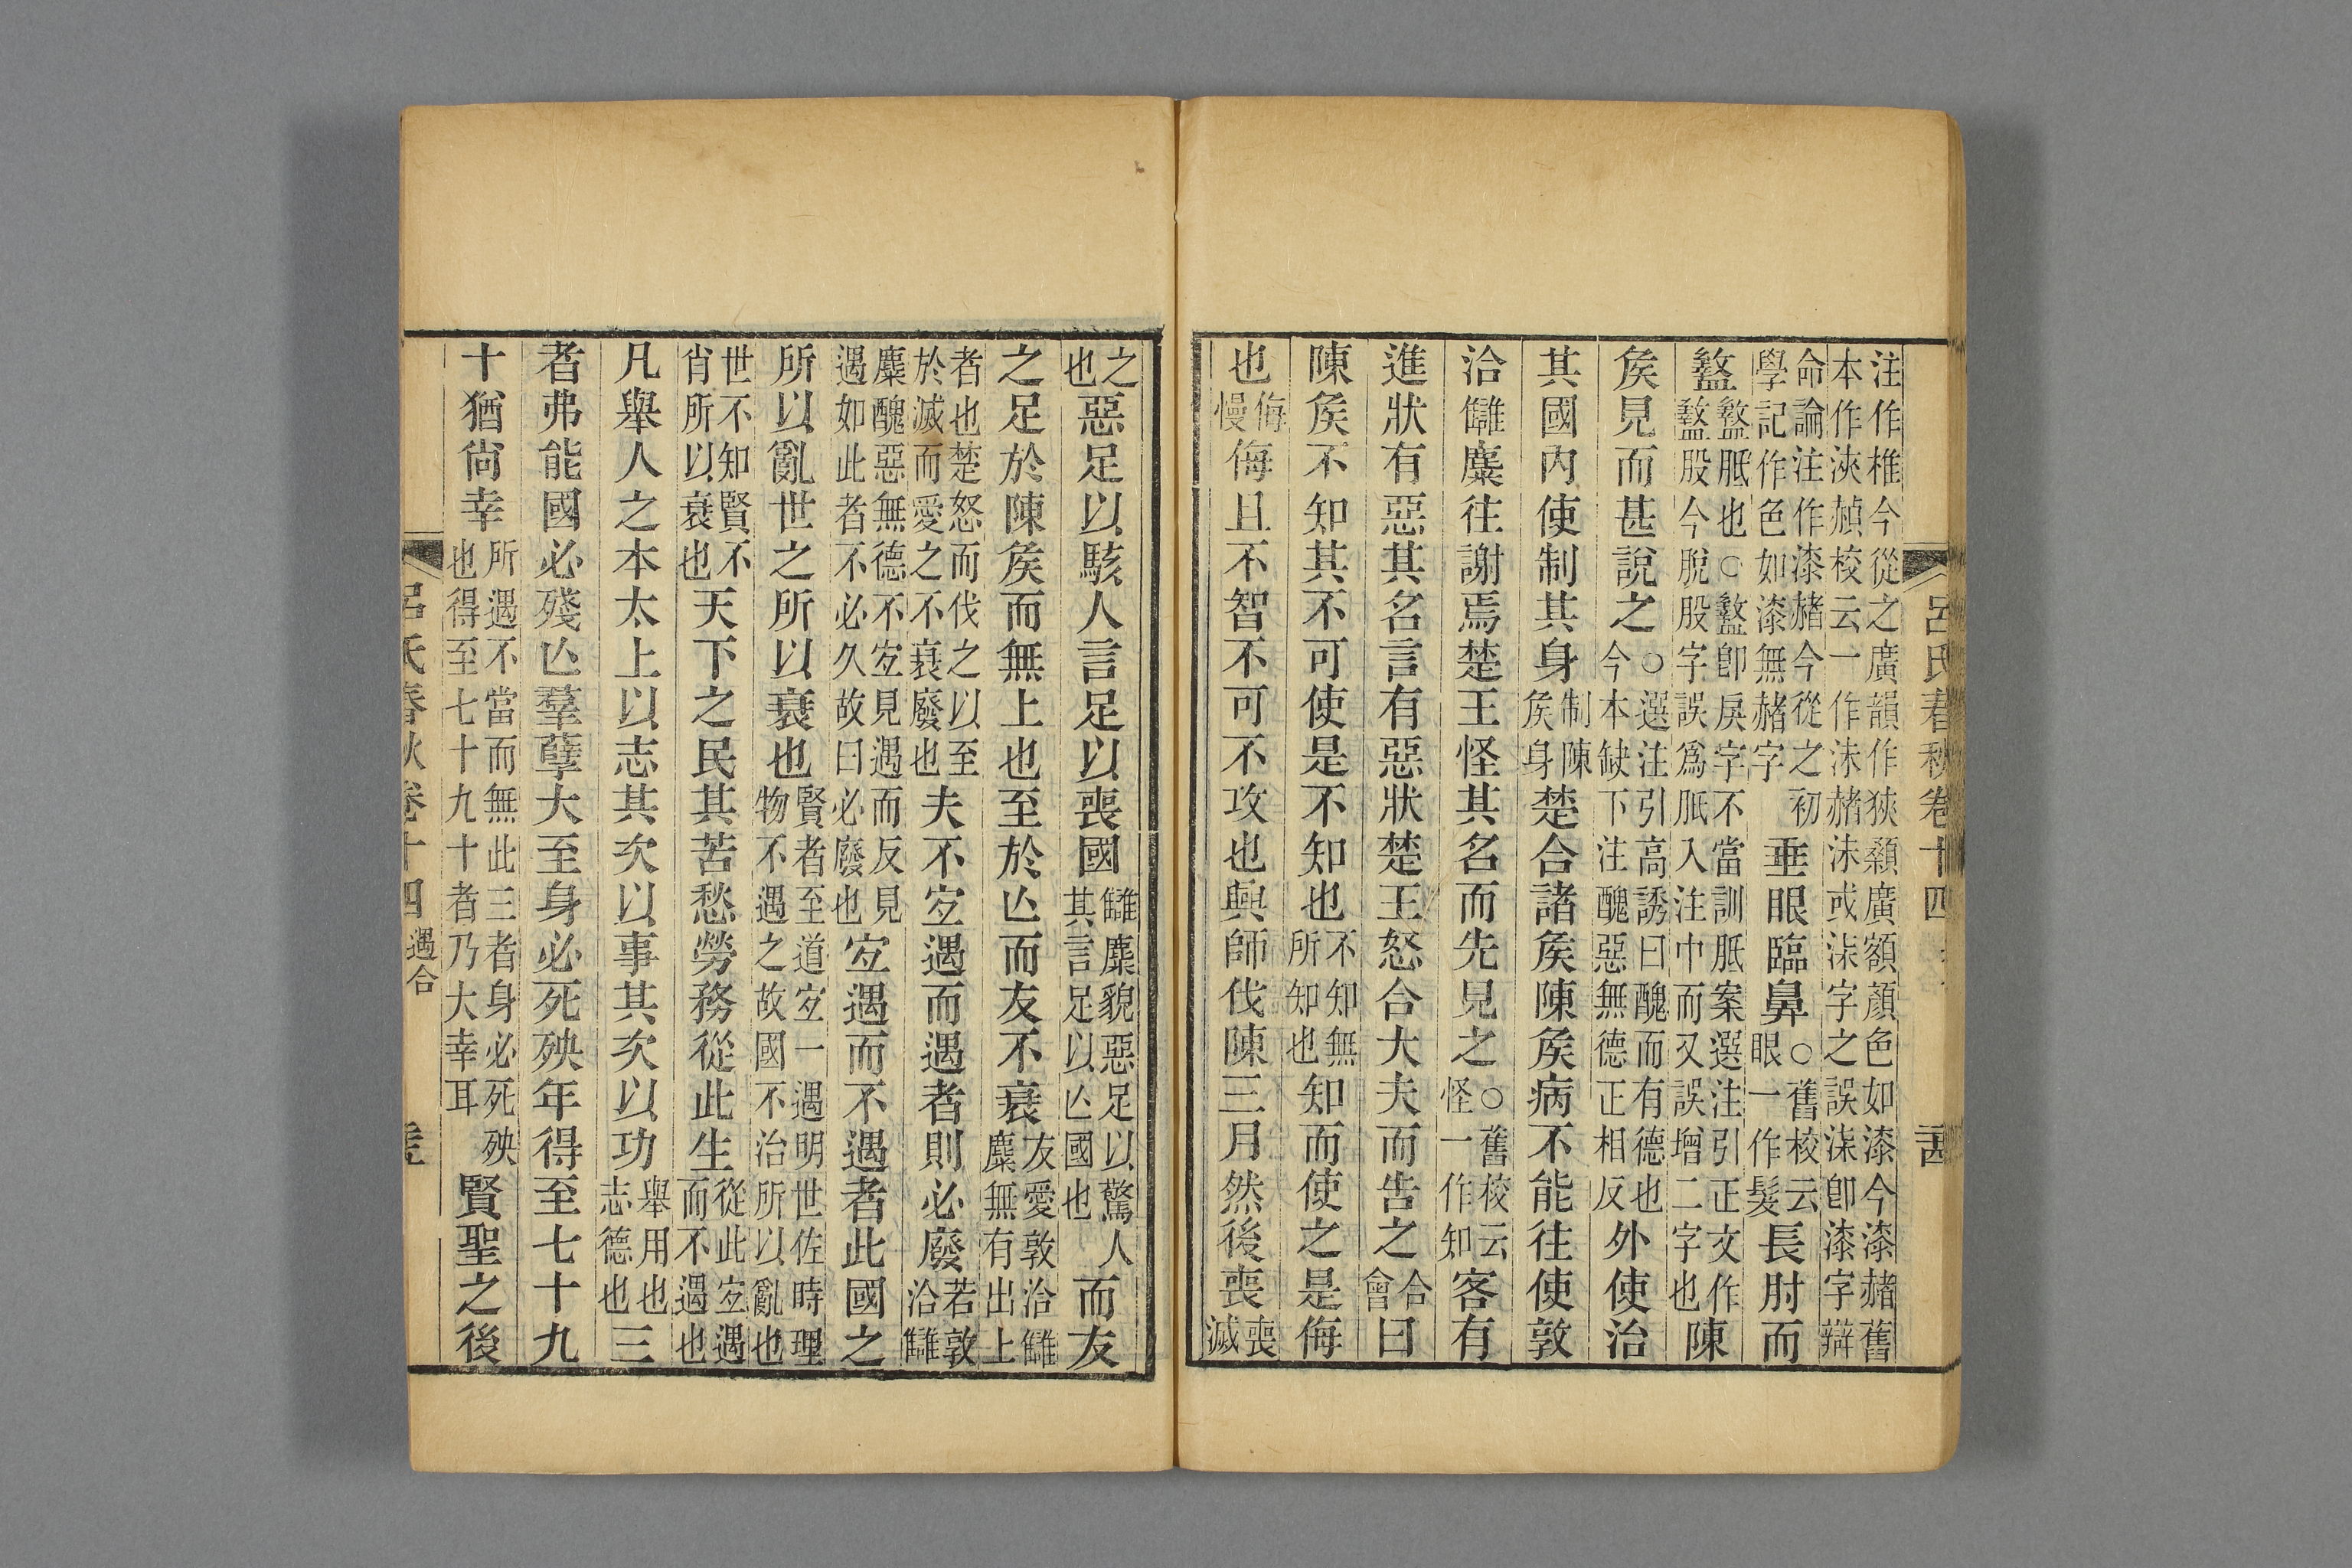 呂氏春秋卷十四
注作椎今從之廣韻作狹顙廣額顏色如漆今漆赭舊本作浹赬校云一作沫赭沫或柒字之誤柒卽漆字辯
命論注作漆赭今從之初學記作色如漆無赭字垂眼臨鼻○舊校云眼一作髮長肘而
盭盭胝也○盭卽戾字不當訓胝案選注引正文作盭股今脫股字誤爲胝入注中而又誤增二字也陳
矦見而甚說之○選注引高誘曰醜而有德也今本缺下注醜惡無德正相反外使治
其國內使制其身制陳矦身楚合諸矦陳矦病不能往使敦
洽讎麋往謝焉楚王怪其名而先見之○舊校云怪一作知客有
進狀有惡其名言有惡狀楚王怒合大夫而告之合會曰
陳矦不知其不可使是不知也不知無所知也知而使之是侮
也侮慢侮且不智不可不攻也興師伐陳三月然後喪喪滅
之也惡足以駭人言足以喪國讎麋貌惡足以驚人其言足以亾國也而友
之足於陳矦而無上也至於亾而友不衰友愛敦洽讎麋無有出上
者也楚怒而伐之以至於滅而愛之不衰廢也夫不宐遇而遇者則必廢若敦洽讎
麋醜惡無德不宐見遇而反見遇如此者不必久故曰必廢也宐遇而不遇者此國之
所以亂世之所以衰也賢者至道宐一遇明世佐時理物不遇之故國不治所以亂也
世不知賢不肖所以衰也天下之民其苦愁勞務從此生從此宐遇而不遇也
凡舉人之本太上以志其次以事其次以功舉用也志德也三
者弗能國必殘亾羣孽大至身必死殃年得至七十九
十猶尙幸所遇不當而無此三者身必死殃也得至七十九十者乃大幸耳賢聖之後
呂氏春秋卷十四 遇合